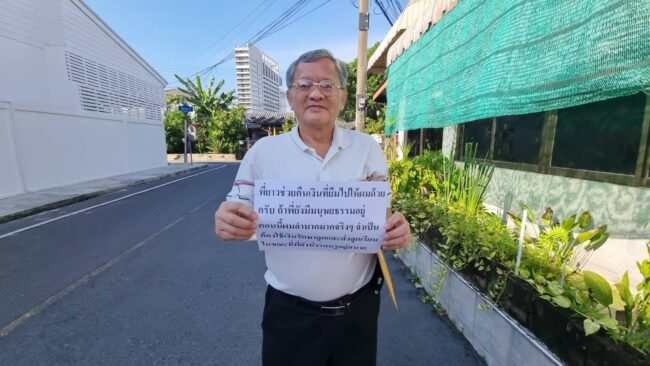 พี่ยาวช่วยคืนเงินที่ยืมไปให้ผมด้วย
ครับ ถ้าพี่ยังมีมนุษยธรรมอยู่
ตอนนี้ผมลำบากมากจริงๆ จำเป็น
ต้องใช้เงินรักษาลูกและส่งลูกเรียน
ในขณะที่พี่ยัง